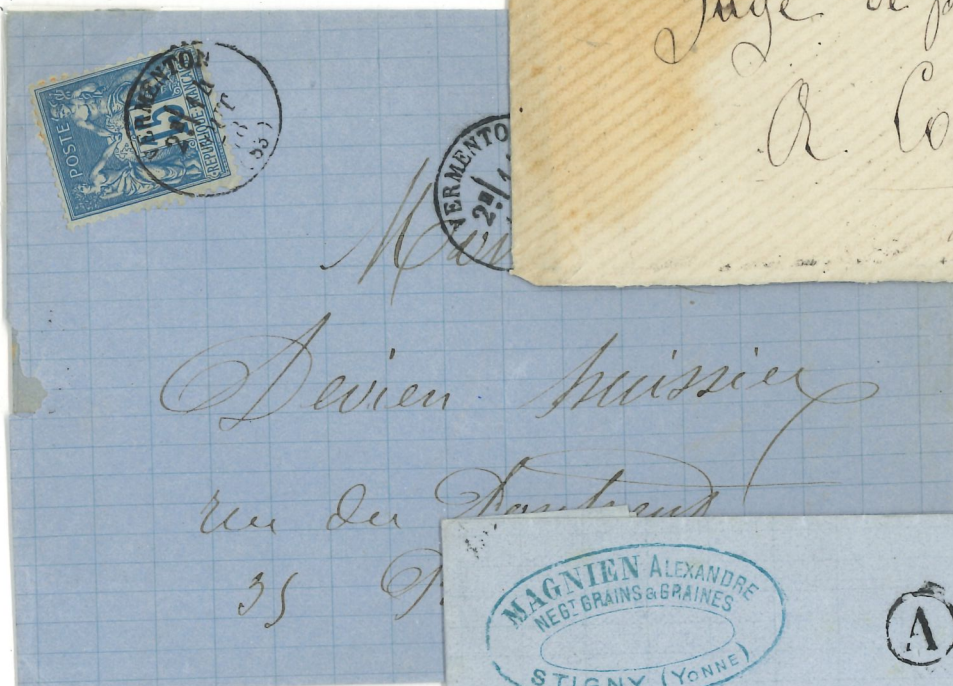 POSTE
15
REPUBLIQUE FRANCAISE
VERMENTON
2E/
83
VERMENTO
2E/
Juge de p
A Co
Mon
Devien huissier
rue du
35 P
MAGNIEN ALEXANDRE
NEGT GRAINS & GRAINES
STIGNY (YONNE)
A